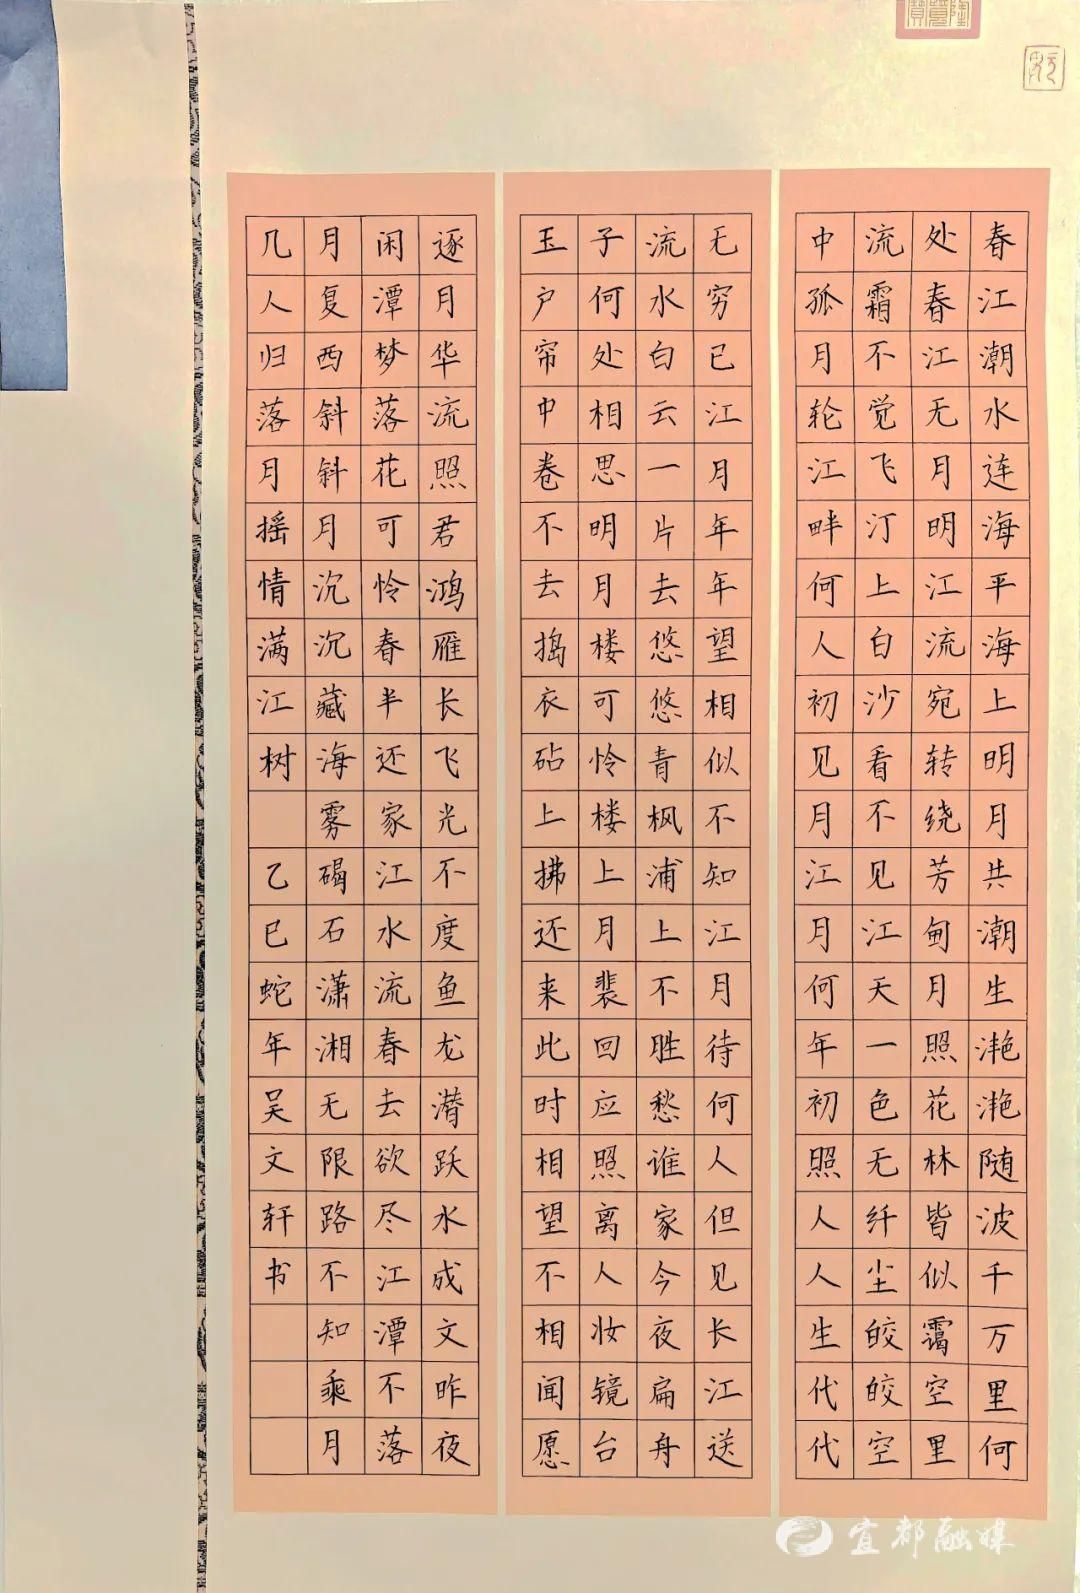 春江潮水连海平海上明月共潮生滟滟随波千万里何
处春江无月明江流宛转绕芳甸月照花林皆似霭空里
流霜不觉飞汀上白沙看不见江天一色无纤尘皎皎空
中孤月轮江畔何人初见月江月何年初照人人生代代
无穷已江月年年望相似不知江月待何人但见长江送
流水白云一片去悠悠青枫浦上不胜愁谁家今夜扁舟
子何处相思明月楼可怜楼上月裴回应照离人妆镜台
玉户帘中卷不去捣衣砧上拂还来此时相望不相闻愿
逐月华流照君鸿雁长飞光不度鱼龙潜跃水成文昨夜
闲潭梦落花可怜春半还家江水流春去欲尽江潭不落
月复西斜斜月沉沉藏海雾碣石潇湘无限路不知乘月
几人归落月摇情满江树 乙巳蛇年吴文轩书
宜都融媒